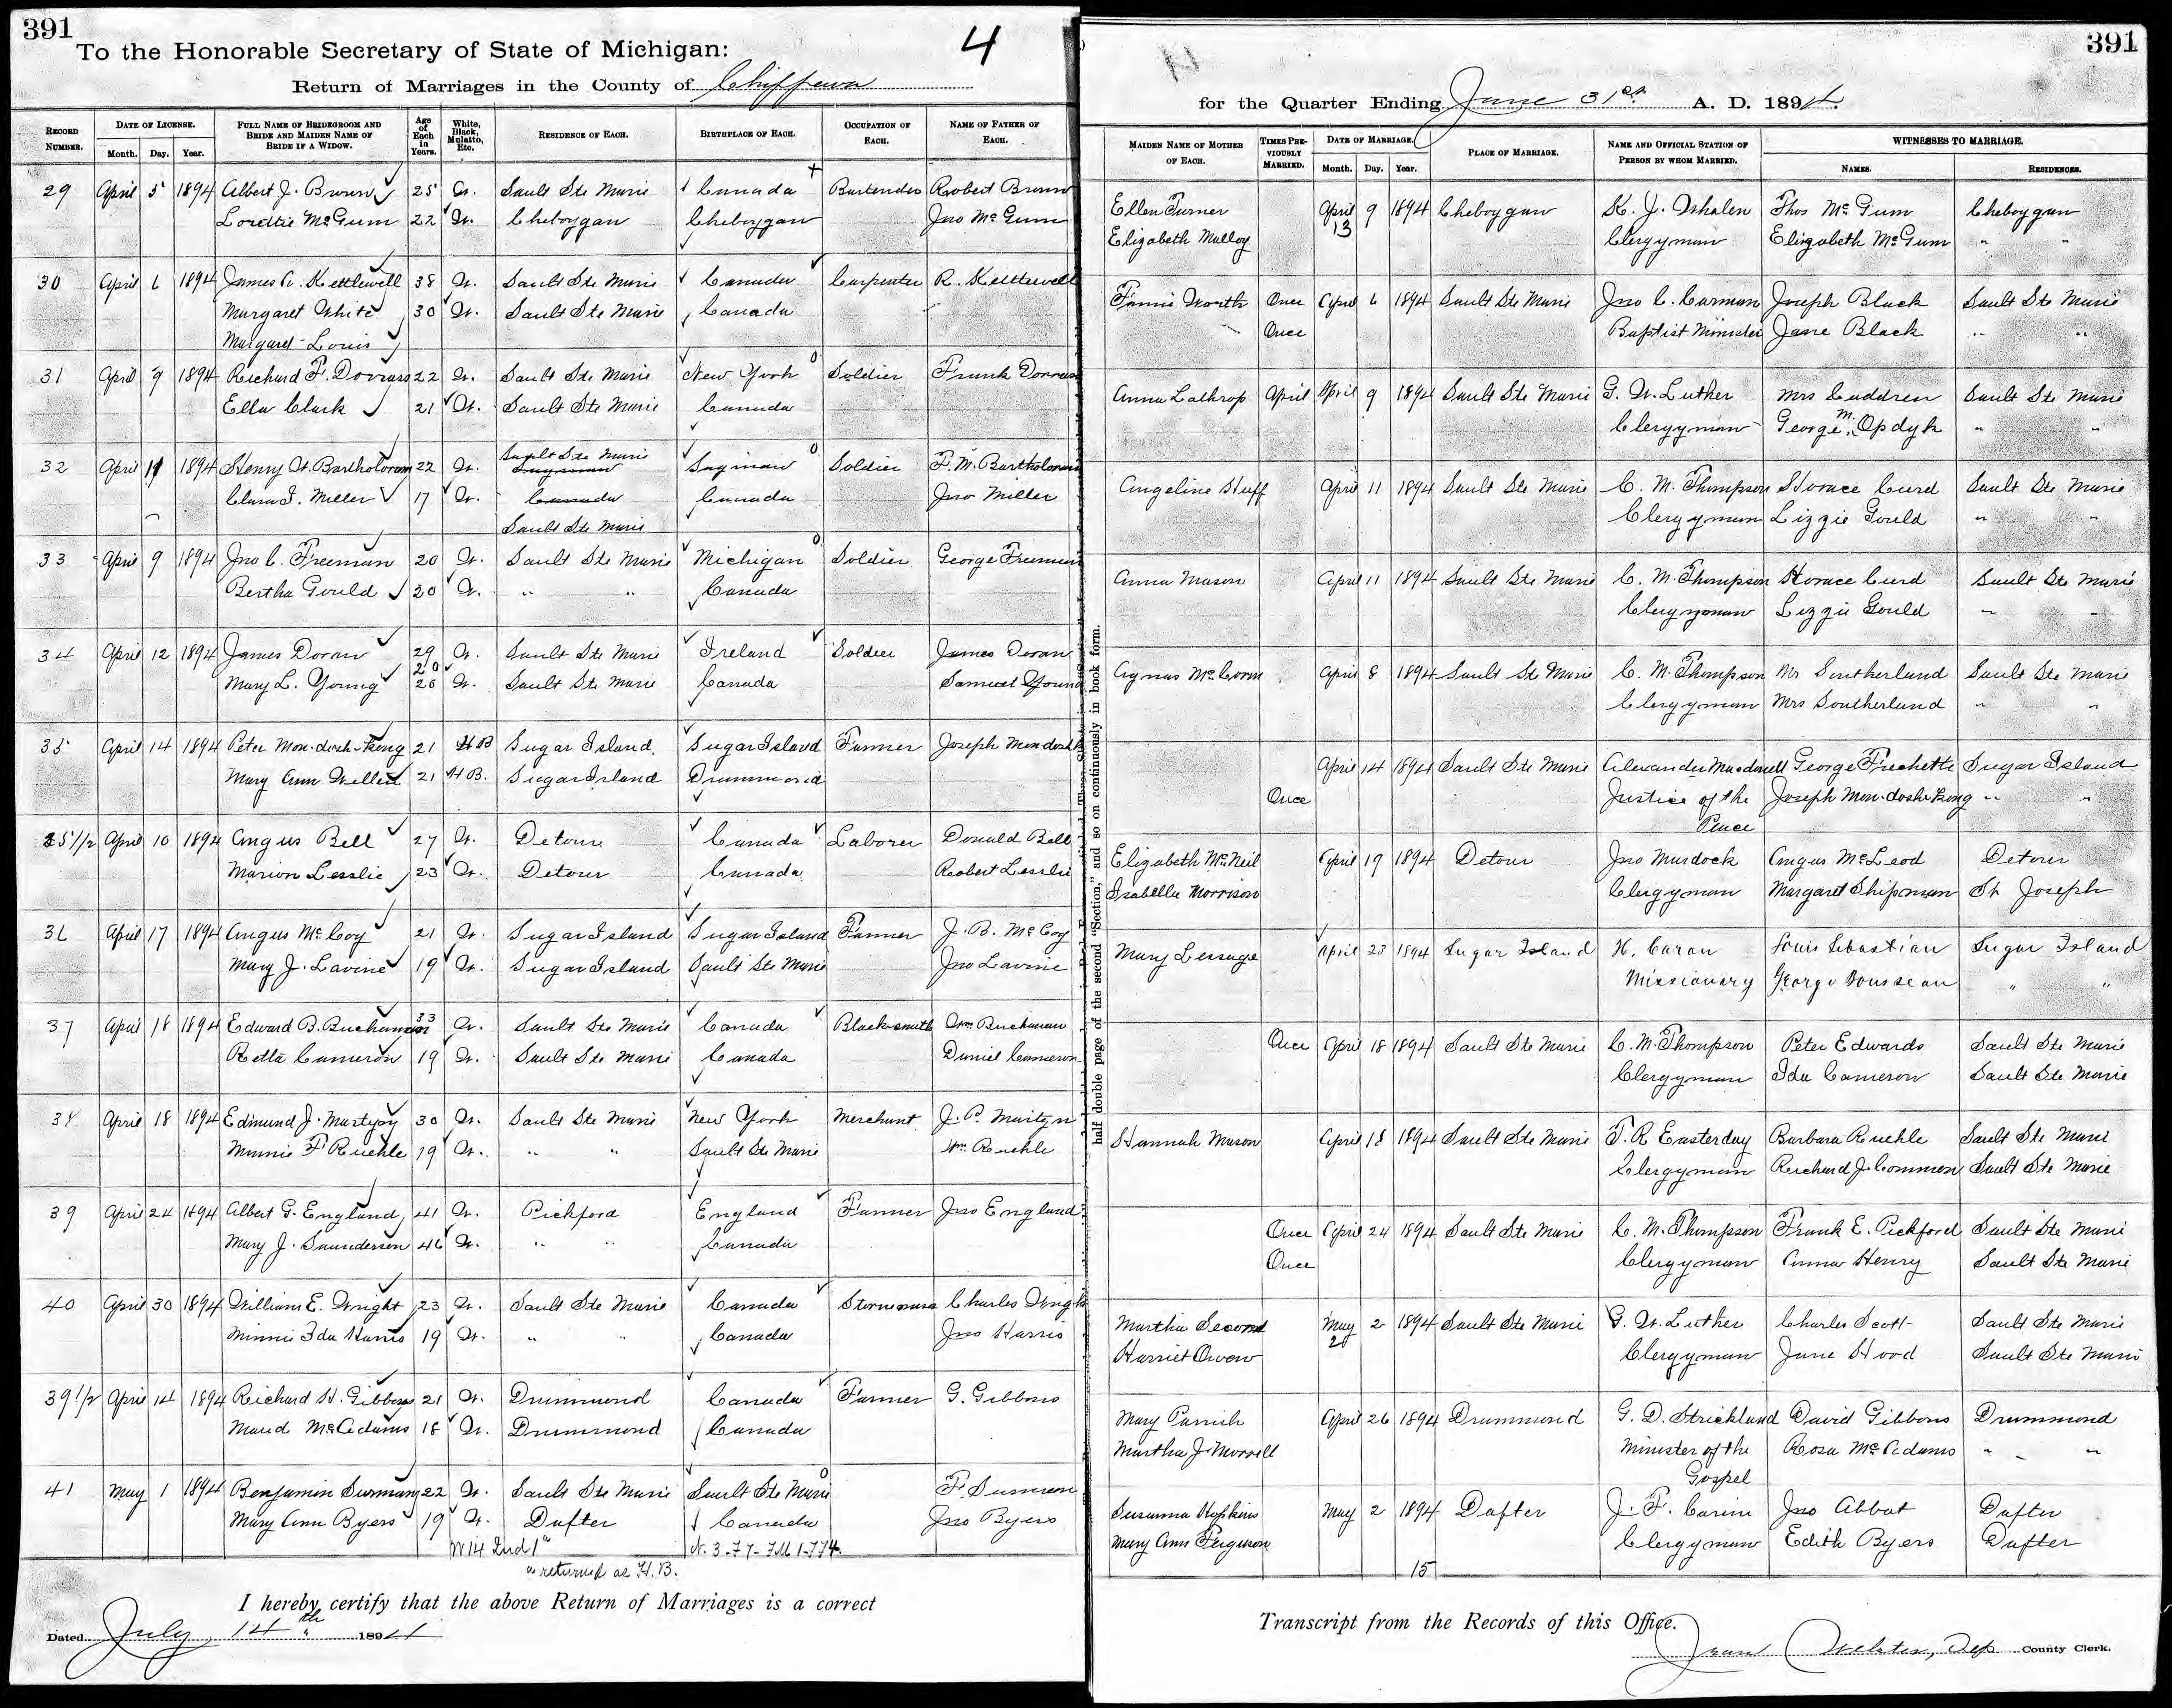 391
To the Honorable Secretary of State of Michigan:
4
Return of Marriages in the County of Chippewa
RECORD NUMBER. DATE OF LICENSE. Month. Day. Year. FULL NAME OF BRIDEGROOM AND BRIDE AND MAIDEN NAME OF BRIDE IF A WIDOW. Age of Each in Years. White, Black, Mulatto, Etc. RESIDENCE OF EACH. BIRTHPLACE OF EACH. OCCUPATION OF EACH. NAME OF FATHER OF EACH.
29 April 5 1894 Albert J. Brown 25 W. Sault Ste Marie Canada Bartender Robert Brown
Lorettie McGum 22 W. Cheboygan Cheboygan Jno McGum
30 April 6 1894 James A. Kettlewell 38 W. Sault Ste Marie Canada Carpenter R. Kettlewell
Margaret White 30 W. Sault Ste Marie Canada
Margaret Louis
31 April 9 1894 Richard F. Dorrass 22 W. Sault Ste Marie New York Soldier Frank Dorrass
Ella Clark 21 W. Sault Ste Marie Canada
Sault Ste Marie
32 April 11 1894 Henry W. Bartholorum 22 W. Saginaw Saginaw Soldier F. M. Bartholorum
Clara I. Miller 17 W. Canada Canada Jno Miller
Sault Ste Marie
33 April 9 1894 Jno C. Freeman 20 W. Sault Ste Marie Michigan Soldier George Freeman
Bertha Gould 20 W. " " Canada
34 April 12 1894 James Doran 29 W. Sault Ste Marie Ireland Soldier James Doran
20
Mary L. Young 26 W. Sault Ste Marie Canada Samuel Young
35 April 14 1894 Peter Mon-dosh-Kong 21 H B Sugar Island Sugar Island Farmer Joseph Mon-dosh
Mary Ann Willett 21 H B. Sugar Island Drummond
35 1/2 April 10 1894 Angus Bell 27 W. Detour Canada Laborer Donald Bell
Marion Lesslie 23 W. Detour Canada Robert Lesslie
36 April 17 1894 Angus McCoy 21 W. Sugar Island Sugar Island Farmer J. B. McCoy
Mary J. Lavine 19 W. Sugar Island Sault Ste Marie Jno Lavine
37 April 18 1894 Edward B. Buchanan 33 W. Sault Ste Marie Canada Blacksmith Wm Buchanan
Retta Cameron 19 W. Sault Ste Marie Canada Daniel Cameron
38 April 18 1894 Edmund J. Martyn 30 W. Sault Ste Marie New York Merchant J. P. Martyn
Minnie F Ruehle 19 W. " " Sault Ste Marie Wm Ruehle
39 April 24 1894 Albert G. England 41 W. Pickford England Farmer Jno England
Mary J. Saunderson 46 W. " " Canada
40 April 30 1894 William E. Wright 23 W. Sault Ste Marie Canada Charles Wright
Minnie Ida Harris 19 W. " " Canada Jno Harris
39 1/2 April 14 1894 Richard H. Gibbons 21 W. Drummond Canada Farmer G. Gibbons
Maud McAdams 18 W. Drummond Canada
41 May 1 1894 Benjamin Surman 22 W. Sault Ste Marie Sault Ste Marie F. Surman
Mary Ann Byers 19 W. Dafter Canada Jno Byers
W 14 Ind 1" N. 3-F 7- F.M 1-F F 4.
as returned as H.B.
I hereby certify that the above Return of Marriages is a correct
Dated July, 14th 1894
391
for the Quarter Ending June 31st. A. D. 1894.
MAIDEN NAME OF MOTHER OF EACH. TIMES PREVIOUSLY MARRIED. DATE OF MARRIAGE. Month. Day. Year. PLACE OF MARRIAGE. NAME AND OFFICIAL STATION OF PERSON BY WHOM MARRIED. WITNESSES TO MARRIAGE. NAMES. RESIDENCES.
Ellen Turner April 9 1894 Cheboygan K. J. Whalen Thos McGum Cheboygan
13
Elizabeth Malloy Clergyman Elizabeth McGum " "
Fannie Worth Once April 6 1894 Sault Ste Marie Jno C. Carman Joseph Black Sault Ste Marie
Once Baptist Minister Jane Black " "
Anna Lathrop April April 9 1894 Sault Ste Marie G. W. Luther Mrs Caddren Sault Ste Marie
Clergyman George M. Opdyk " "
Angeline Huff April 11 1894 Sault Ste Marie C. M. Thompson Horace Curd Sault Ste Marie
Clergyman Lizzie Gould " "
Anna Mason April 11 1894 Sault Ste Marie C. M. Thompson Horace Curd Sault Ste Marie
Clergyman Lizzie Gould " "
Agnas McCorm April 8 1894 Sault Ste Marie C. M. Thompson Mr Southerland Sault Ste Marie
Clergyman Mrs Southerland " "
April 14 1894 Sault Ste Marie Alexander Macdonell George Frechette Sugar Island
Once Justice of the Joseph Mon-doshKong " "
Peace
Elizabeth McNeil April 19 1894 Detour Jno Murdock Angus McLeod Detour
Isabella Morrison Clergyman Margaret Shipman St Joseph
Mary Lessage April 23 1894 Sugar Island N. Caron Louis Sebastian Sugar Island
Missionary George Rousseau " "
Once April 18 1894 Sault Ste Marie C. M. Thompson Peter Edwards Sault Ste Marie
Clergyman Ida Cameron Sault Ste Marie
Hannah Mason April 18 1894 Sault Ste Marie T. R Easterday Barbara Ruehle Sault Ste Marie
Clergyman Richard J. Common Sault Ste Marie
Once April 24 1894 Sault Ste Marie C. M. Thompson Frank E. Pickford Sault Ste Marie
Once Clergyman Anna Henry Sault Ste Marie
Martha Second May 2 1894 Sault Ste Marie G. W. Luther Charles Scott Sault Ste Marie
20
Harriet Owen Clergyman Jane Hood Sault Ste Marie
Mary Parrish April 26 1894 Drummond G. D. Strickland David Gibbons Drummond
Martha J. Morrell Minister of the Rosa McAdams " "
Gospel
Susanna Hopkins May 2 1894 Dafter J. F. Carine Jno Abbot Dafter
Mary Ann Ferguson Clergyman Edith Byers Dafter
15
half double page of the second "Section," and so on continuously in book form.
Transcript from the Records of this Office.
Webster, Dep County Clerk.